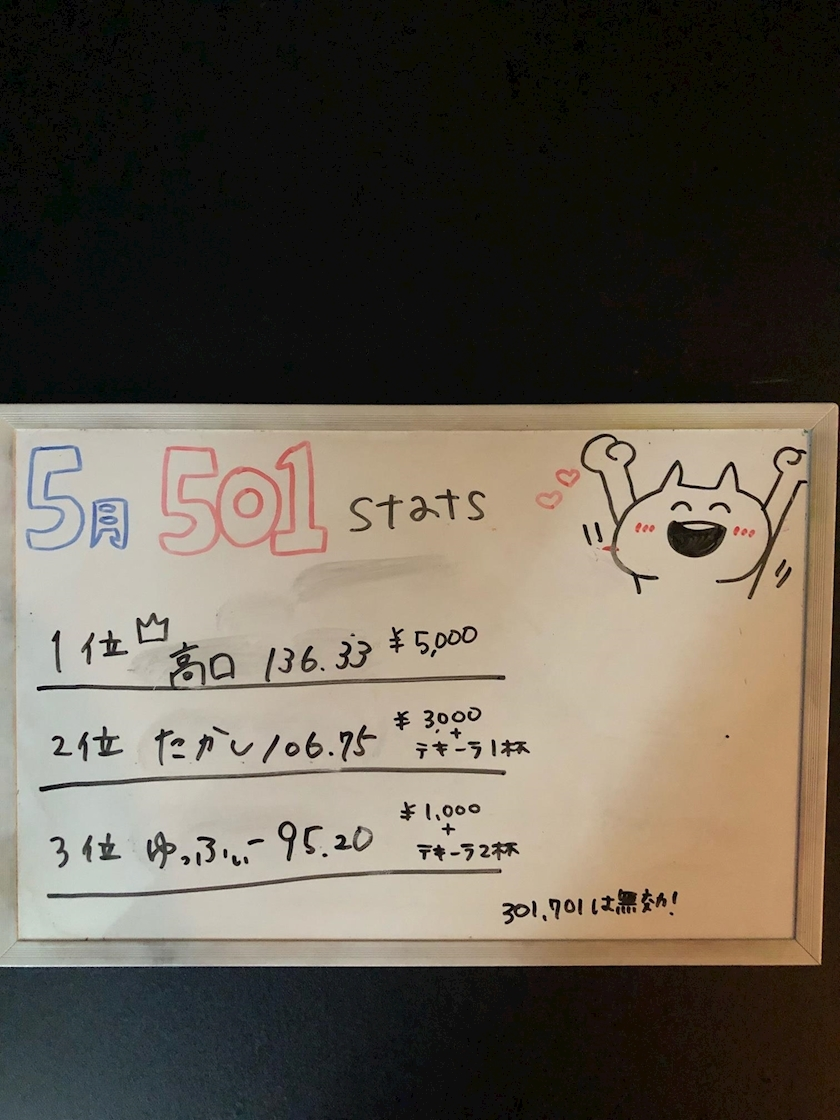 5月 501 stats
1位 高口 136.33 ¥5,000
2位 たかし 106.75 ¥3,000
+
テキーラ1杯
3位 ゆっふぃー 95.20 ¥1,000
+
テキーラ2杯
301,701は無効!